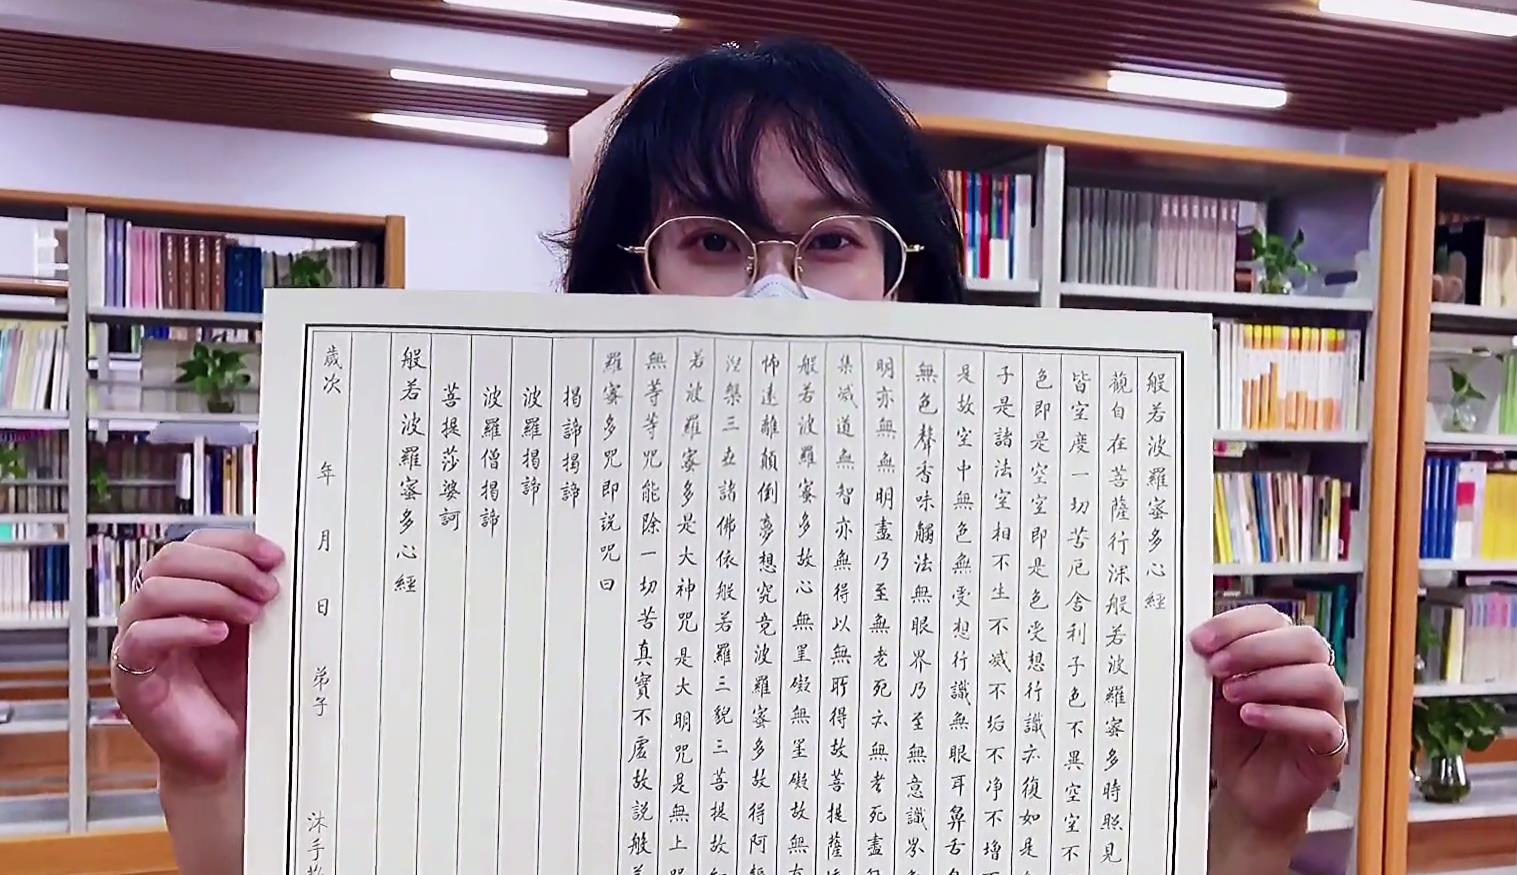 般若波羅蜜多心經
觀自在菩薩行深般若波羅蜜多時照見
皆空度一切苦厄舍利子色不異空空不
色即是空空即是色受想行識亦復如是
子是諸法空相不生不滅不垢不净不增
是故空中無色無受想行識無眼耳鼻舌
無色聲香味觸法無眼界乃至無意識界
明亦無無明盡乃至無老死亦無老死盡
集滅道無智亦無得以無所得故菩提薩
般若波羅蜜多故心無罣礙無罣礙故無
怖遠離顛倒夢想究竟波羅蜜多故得阿
涅槃三世諸佛依般若羅三貌三菩提故
若波羅蜜多是大神咒是大明咒是無上
無等等咒能除一切苦真實不虛故說般
羅蜜多咒即説咒曰
揭諦揭諦
波羅揭諦
波羅僧揭諦
菩提莎婆訶
般若波羅蜜多心經
歲次 年 月 日 弟子 沐手